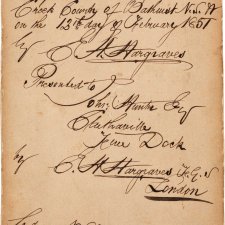 Creek County of Bathurst N.S.W
on the 12th day of February 1851
by E H Hargraves
Presented to
John Hunter Esq
Dock
by E H Hargraves F.G.S
London